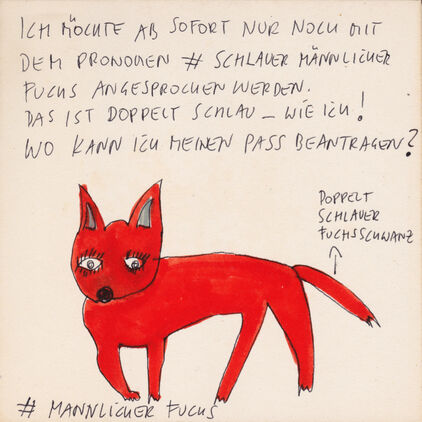 ICH MÖCHTE AB SOFORT NUR NOCH MIT
DEM PRONOMEN # SCHLAUER MÄNNLICHER
FUCHS ANGESPROCHEN WERDEN.
DAS IST DOPPELT SCHLAU – WIE ICH!
WO KANN ICH MEINEN PASS BEANTRAGEN?
DOPPELT
SCHLAUER
FUCHSSCHWANZ
# MÄNNLICHER FUCHS